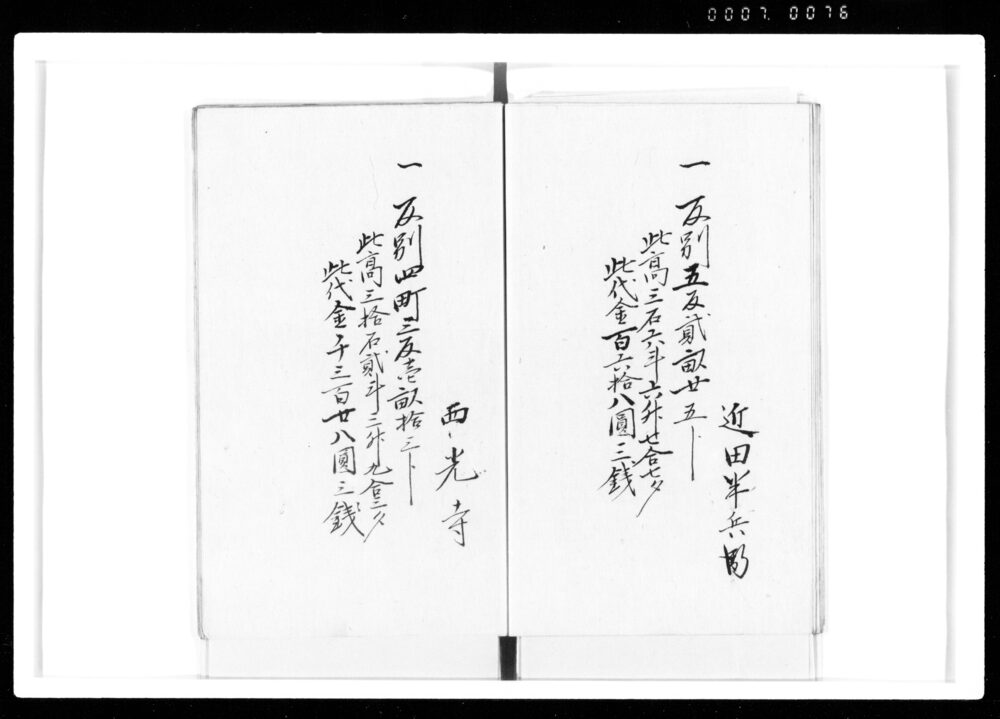 0007. 0076
一 反別五反貳畝廿五卜
此高三石六斗六升七合七夕
此代金百六拾八圓三錢
近田半兵衛
一 反別四町三反壱畝拾三卜
此高三拾石貳斗三升九合三夕
此代金千三百廿八圓三錢
西光寺